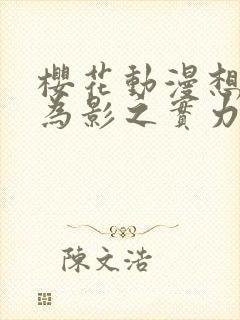 櫻花動漫想
為影之實力
陳文浩